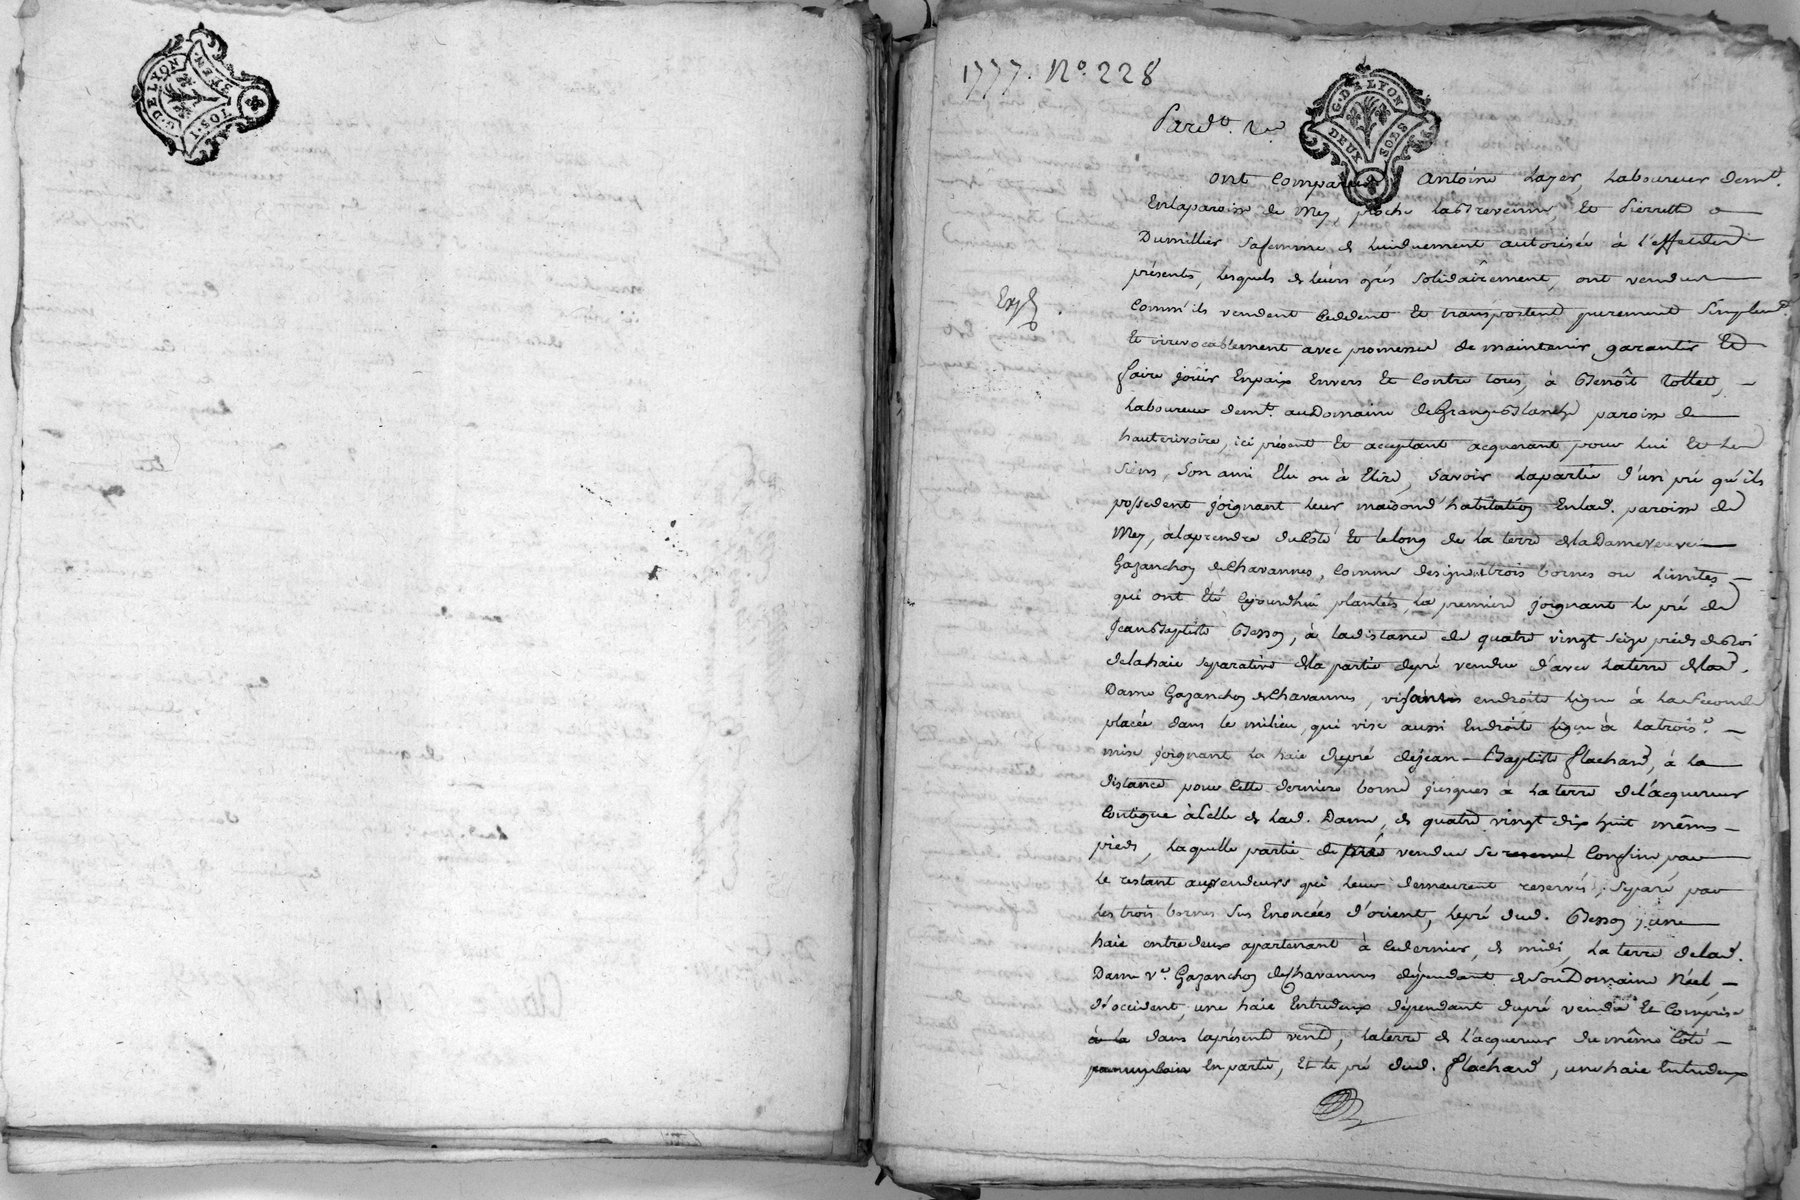 G. DE LYON
10 S. 1 DEN
1777. No. 228
G. DE LYON
DEUX SOLS
Pardt. Re
ont comparus Antoine Layer, Laboureur demt.
En la paroisse de Mey, proche la Brevenne, Et Pierrette
Dumillier sa femme de lui duement autorisée à l'effet des
présents, lesquels de leurs grés solidairement, ont vendu
Comm'ils vendent Cedent Et transportent purement Simplemt.
Et irrevocablement avec promesse de maintenir, garantir Et
faire joüir En paix Envers Et Contre tous, à Benoît
Laboureur demt. au Domaine de Grange Blanche paroisse de
Expé.
hauterivoire, ici présent Et acceptant acquerant pour Lui Et Les
Siens, Son ami Elu ou à Elire, Savoir La partie d'un pré qu'ils
possedent joignant leur maison d'habitation En lad. paroisse de
Mey, à la prendre du Coté Et le long de la terre de la Dame veuve
Gazanchon de Chavannes, Comme designent trois bornes ou Limites
qui ont Eté Cejourdhui plantées, la premiere joignant le pré de
Jean Baptiste Besson, à la distance de quatre vingt seize pieds de Roi
de la haie separative de la partie de pré vendue d'avec la terre de lad.
Dame Gazanchon de Chavannes, visante en droite ligne à la Seconde
placée dans le milieu, qui vise aussi En droite ligne à la trois.e
mise joignant la haie du pré de jean-Baptiste flachard, à la
distance pour Cette derniere borne jusques à la terre de l'acquereur
Contigue à Celle de lad. Dame, de quatre vingt dix huit mêmes
pieds, laquelle partie de pré vendue se Confine par
le restant aux vendeurs qui leur demeurent reservés, Separé par
les trois bornes Sus Enoncées d'orient, le pré dud. Besson, une
haie entre deux apartenant à Ce dernier, de midi, la terre de lad.
Dame ve. Gazanchon de Chavannes dépendant de Son Domaine Néel,
d'occident, une haie Entredeux dépendant du pré vendu Et Comprise
à la dans la présente vente, la terre de l'acquereur du même Coté
En partie, Et le pré dud. flachard, une haie Entredeux